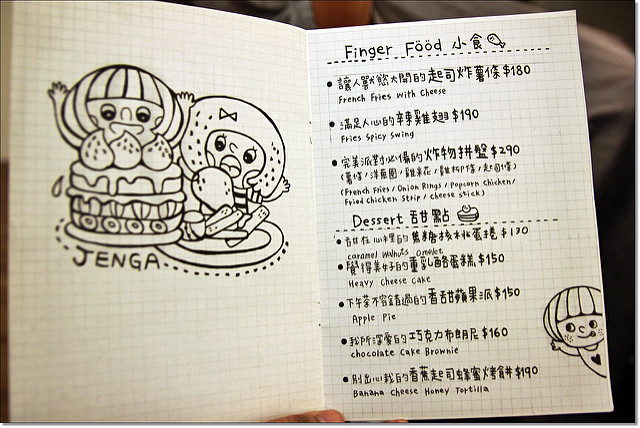 JENGA
Finger Fööd 小食
讓人獸慾大開的起司炸薯條$180
French Fries with Cheese
滿足人心的辣雞翅$190
Fries Spicy Swing
完美派對必備的炸物拼盤$290
(薯條/洋蔥圈/雞米花/雞柳條/起司條)
(French Fries/Onion Rings/Popcorn Chicken/
Fried Chicken Strip/Cheese stick)
Dessert 甜點
甜在心裡的焦糖核桃蛋捲$130
caramel Walnuts Omelet
覺得美好的重乳酪蛋糕$150
Heavy Cheese Cake
下午茶不容錯過的香甜蘋果派$150
Apple Pie
我所深愛的巧克力布朗尼$160
chocolate Cake Brownie
別出心裁的香蕉起司蜂蜜烤餅$190
Banana Cheese Honey Tortilla